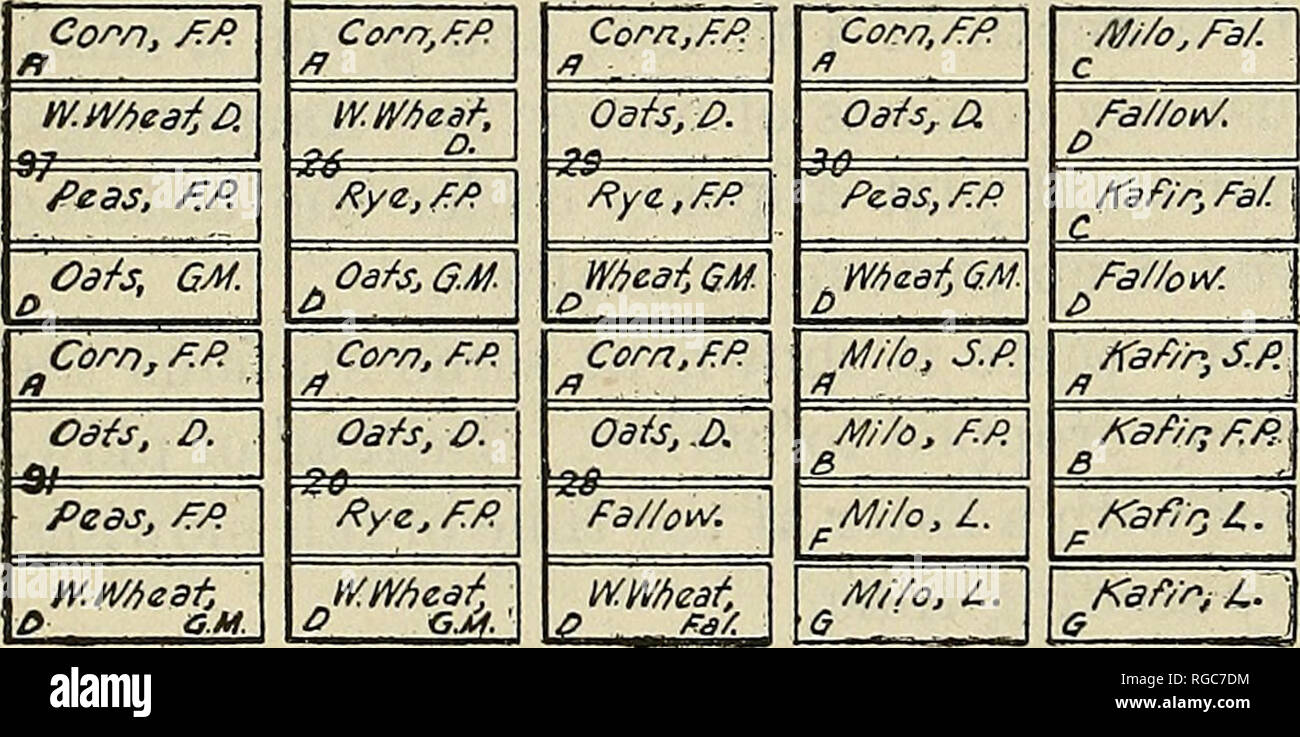 Corn, F.P.
A
W.Wheat, D.
97
Peas, F.P.
Oats, G.M.
D
Corn, F.P.
A
Oats, D.
91
Peas, F.P.
W.Wheat,
D G.M.
Corn, F.P.
A
W.Wheat,
D.
26
Rye, F.P.
Oats, G.M.
D
Corn, F.P.
A
Oats, D.
20
Rye, F.P.
W.Wheat,
D G.M.
Corn, F.P.
A
Oats, D.
29
Rye, F.P.
Wheat, G.M.
D
Corn, F.P.
A
Oats, D.
28
Fallow.
W.Wheat,
D Fal.
Corn, F.P.
A
Oats, D.
30
Peas, F.P.
Wheat, G.M.
D
Milo, S.P.
A
Milo, F.P.
B
Milo, L.
F
Milo, L.
G
Milo, Fal.
C
Fallow.
D
Kafir, Fal.
C
Fallow.
D
Kafir, S.P.
A
Kafir, F.P.
B
Kafir, L.
F
Kafir, L.
G
alamy
Image ID: RGC7DM
www.alamy.com